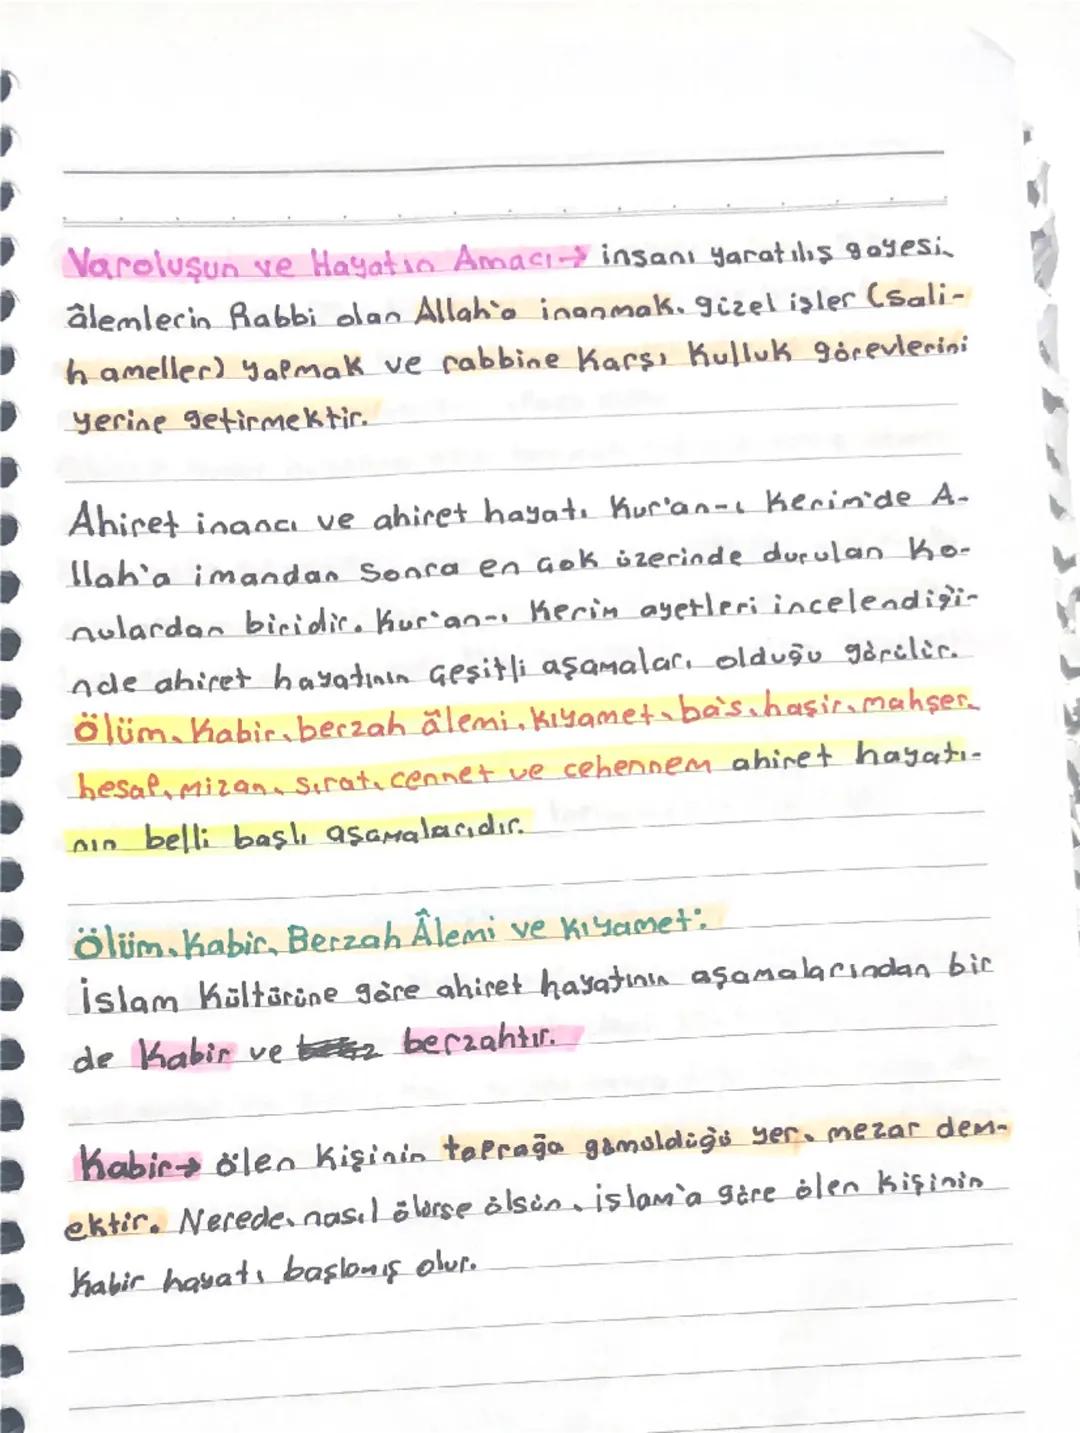 Varoluşun ve Hayatın Amacı→ insanı yaratılış gayesi,
âlemlerin Rabbi olan Allah'a inanmak, güzel işler (sali-
h ameller) yapmak ve rabbine karşı kulluk görevlerini
yerine getirmektir.
Ahiret inancı ve ahiret hayatı Kur'an-ı Kerim'de A-
llah'a imandan sonra en çok üzerinde durulan ko-
nulardan biridir. Kur'an-ı Kerim ayetleri incelendiği-
nde ahiret hayatının çeşitli aşamaları olduğu görülür.
Ölüm, kabir, berzah âlemi, kıyamet, ba's, haşir, mahşer,
hesap, mizan, sırat, cennet ve cehennem ahiret hayatı-
nın belli başlı aşamalarıdır.
Ölüm, Kabir, Berzah Âlemi ve Kıyamet:
İslam Kültürüne göre ahiret hayatının aşamalarından bir
de Kabir ve berzahtır.
Kabir→ ölen kişinin toprağa gömüldüğü yer, mezar dem-
ektir. Nerede, nasıl ölürse ölsün, islam'a göre ölen kişinin
Kabir hayatı başlamış olur.